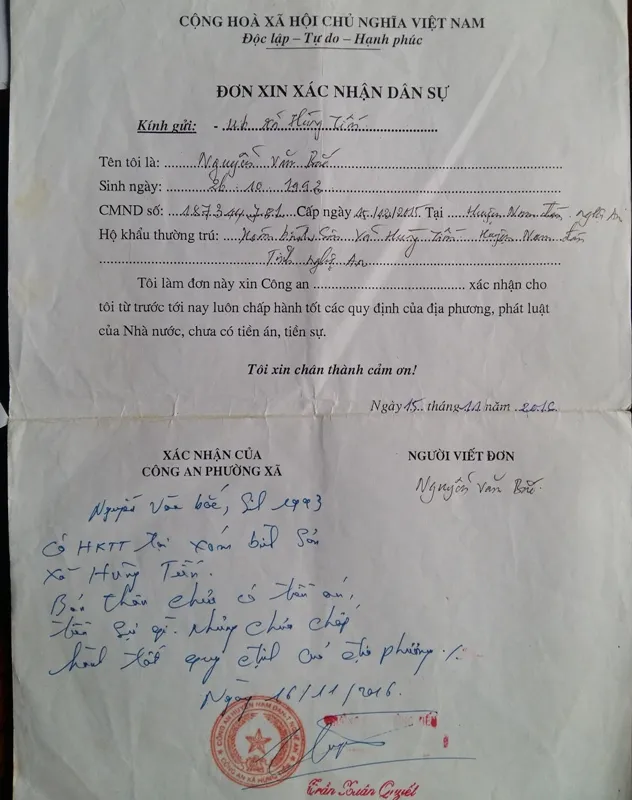 CỘNG HOÀ XÃ HỘI CHỦ NGHĨA VIỆT NAM
Độc lập – Tự do – Hạnh phúc
ĐƠN XIN XÁC NHẬN DÂN SỰ
Kính gửi: - ub xã Hùng Tiến
Tên tôi là: Nguyễn Văn Bắc
Sinh ngày: 26 10 1992
CMND số: Cấp ngày 15/12/2015 Tại Huyện Nam Đàn, Nghệ An
Hộ khẩu thường trú: Xóm Bình Sơn Xã Hùng Tiến Huyện Nam Đàn
Tỉnh Nghệ An
Tôi làm đơn này xin Công an xác nhận cho
tôi từ trước tới nay luôn chấp hành tốt các quy định của địa phương, phát luật
của Nhà nước, chưa có tiền án, tiền sự.
Tôi xin chân thành cảm ơn!
Ngày 15 tháng 11 năm 2016
XÁC NHẬN CỦA
CÔNG AN PHƯỜNG XÃ
NGƯỜI VIẾT ĐƠN
Nguyễn Văn Bắc
Nguyễn Văn Bắc, 1993
Có HKTT tại xóm Bình Sơn
Xã Hùng Tiến.
Bản thân chưa có tiền án,
tiền sự gì. chấp
hành tốt quy định địa phương
Ngày 16/11/2016.
CÔNG AN HUYỆN NAM ĐÀN T. NGHỆ AN
CÔNG AN XÃ HÙNG TIẾN
Trần Xuân Quyết